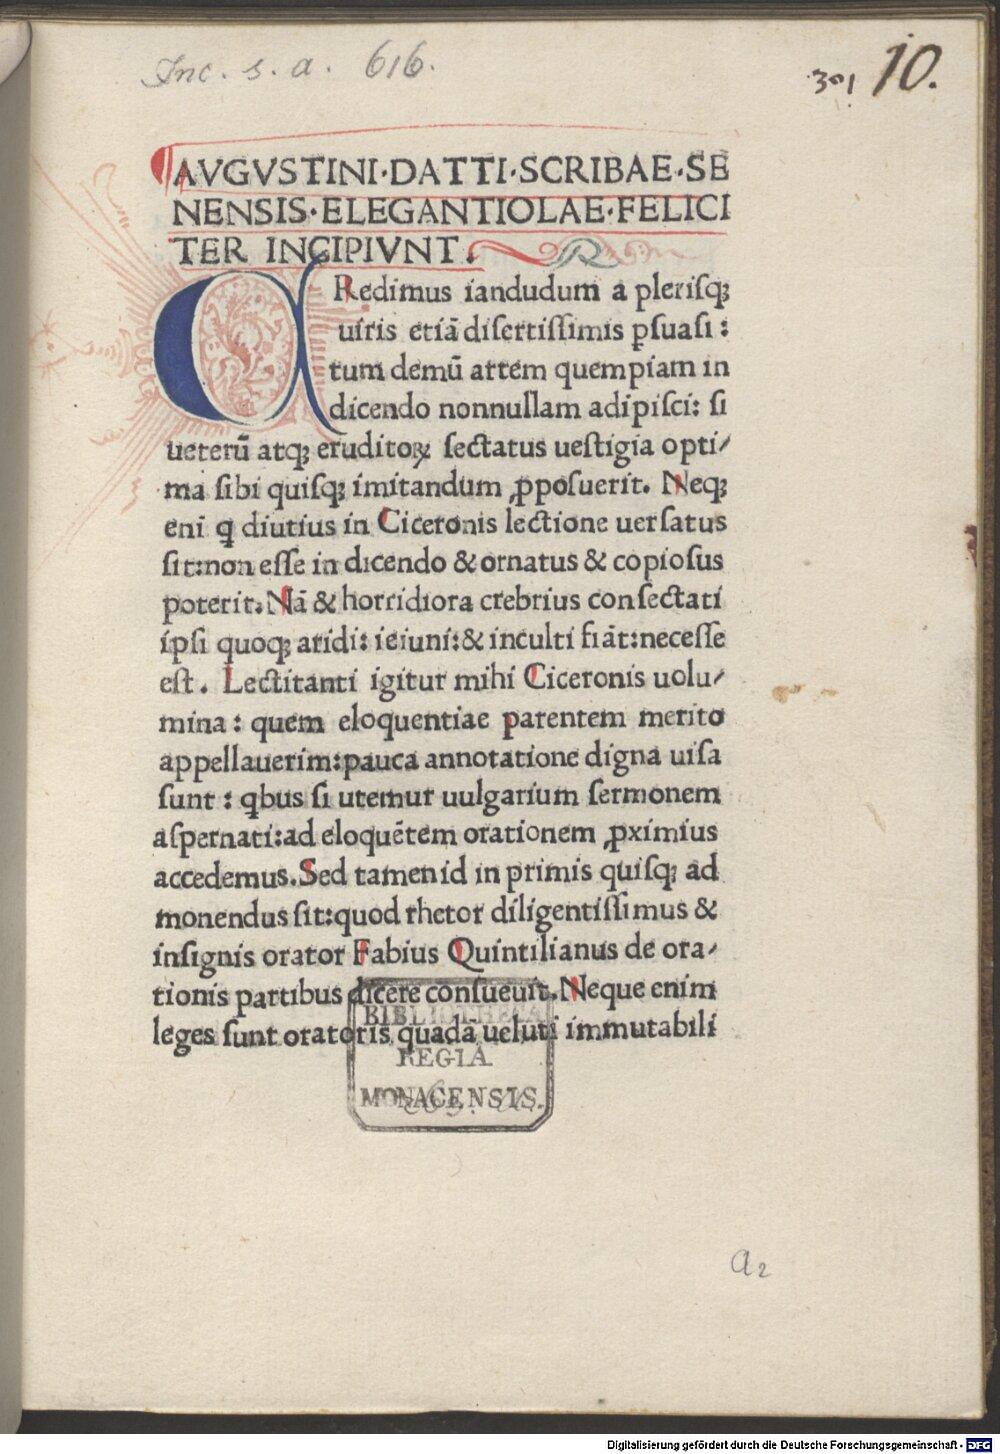 Inc. s. a. 616.
301 10.
AVGVSTINI·DATTI·SCRIBAE·SE
NENSIS·ELEGANTIOLAE·FELICI
TER INCIPIVNT.
CRedimus iandudum a pleriſqꝫ
uiris etiā diſertiſſimis ꝑſuaſi:
tum demū artem quempiam in
dicendo nonnullam adipiſci: ſi
ueterū atqꝫ eruditoꝝ ſectatus ueſtigia opti⸗
ma ſibi quiſqꝫ imitandum ꝓpoſuerit. Neqꝫ
eni ꝗ diutius in Ciceronis lectione uerſatus
ſit:non eſſe in dicendo & ornatus & copioſus
poterit. Nā & horridiora crebrius conſectati
ipſi quoqꝫ aridi: ieiuni:& inculti fiāt:neceſſe
eſt. Lectitanti igitur mihi Ciceronis uolu⸗
mina: quem eloquentiae parentem merito
appellauerim:pauca annotatione digna uiſa
ſunt: ꝗbus ſi utemur uulgarium ſermonem
aſpernati:ad eloquētem orationem ꝓximius
accedemus. Sed tamen id in primis quiſqꝫ ad
monendus ſit:quod rhetor diligentiſſimus &
inſignis orator Fabius Quintilianus de ora⸗
tionis partibus dicere conſueuit. Neque enim
leges ſunt oratoris quadā ueluti immutabili
BIBLIOTHECA
REGIA
MONACENSIS.
a2
Digitalisierung gefördert durch die Deutsche Forschungsgemeinschaft - DFG